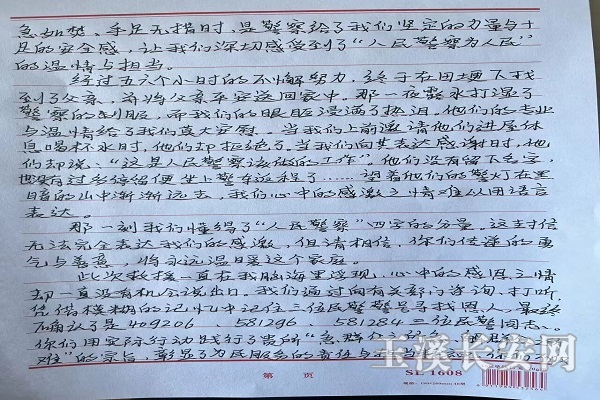 急如焚、手足无措时，是警察给了我们坚定的力量与十
足的安全感，让我们深切感受到了“人民警察为人民”
的温情与担当。
经过五六个小时的不懈努力，终于在田埂下找
到了父亲，并将父亲平安送回家中。那一夜露水打湿了
警察的制服，而我们的眼眶浸满了热泪，他们的专业
与温情给了我们莫大安慰。当我们上前邀请他们进屋休
息喝杯水时，他们却拒绝了。当我们向其表达感谢时，他
们却说、“这是人民警察该做的工作”，他们没有留下名字，
也没有过多停留便坐上警车返程了……望着他们的警灯在黑
暗的山中渐渐远去，我们心中的感激之情难以用语言
表达。
那一刻我们懂得了“人民警察”四字的分量。这封信
无法完全表达我们的感激，但请相信，你们传递的勇
气与善意，将永远温暖这个家庭。
此次救援一直在我脑海里浮现，心中的感恩之情
却一直没有机会说出口。我们通过向有关部门咨询、打听，
凭借模糊的记忆中记住三位民警警号寻找恩人，最终
确认了是409206、581296、581284三位民警同志。
你们用实际行动践行了贵所“急群众
难”的宗旨，彰显了为民服务的责任与
玉溪长安网
第 页
SL 1608